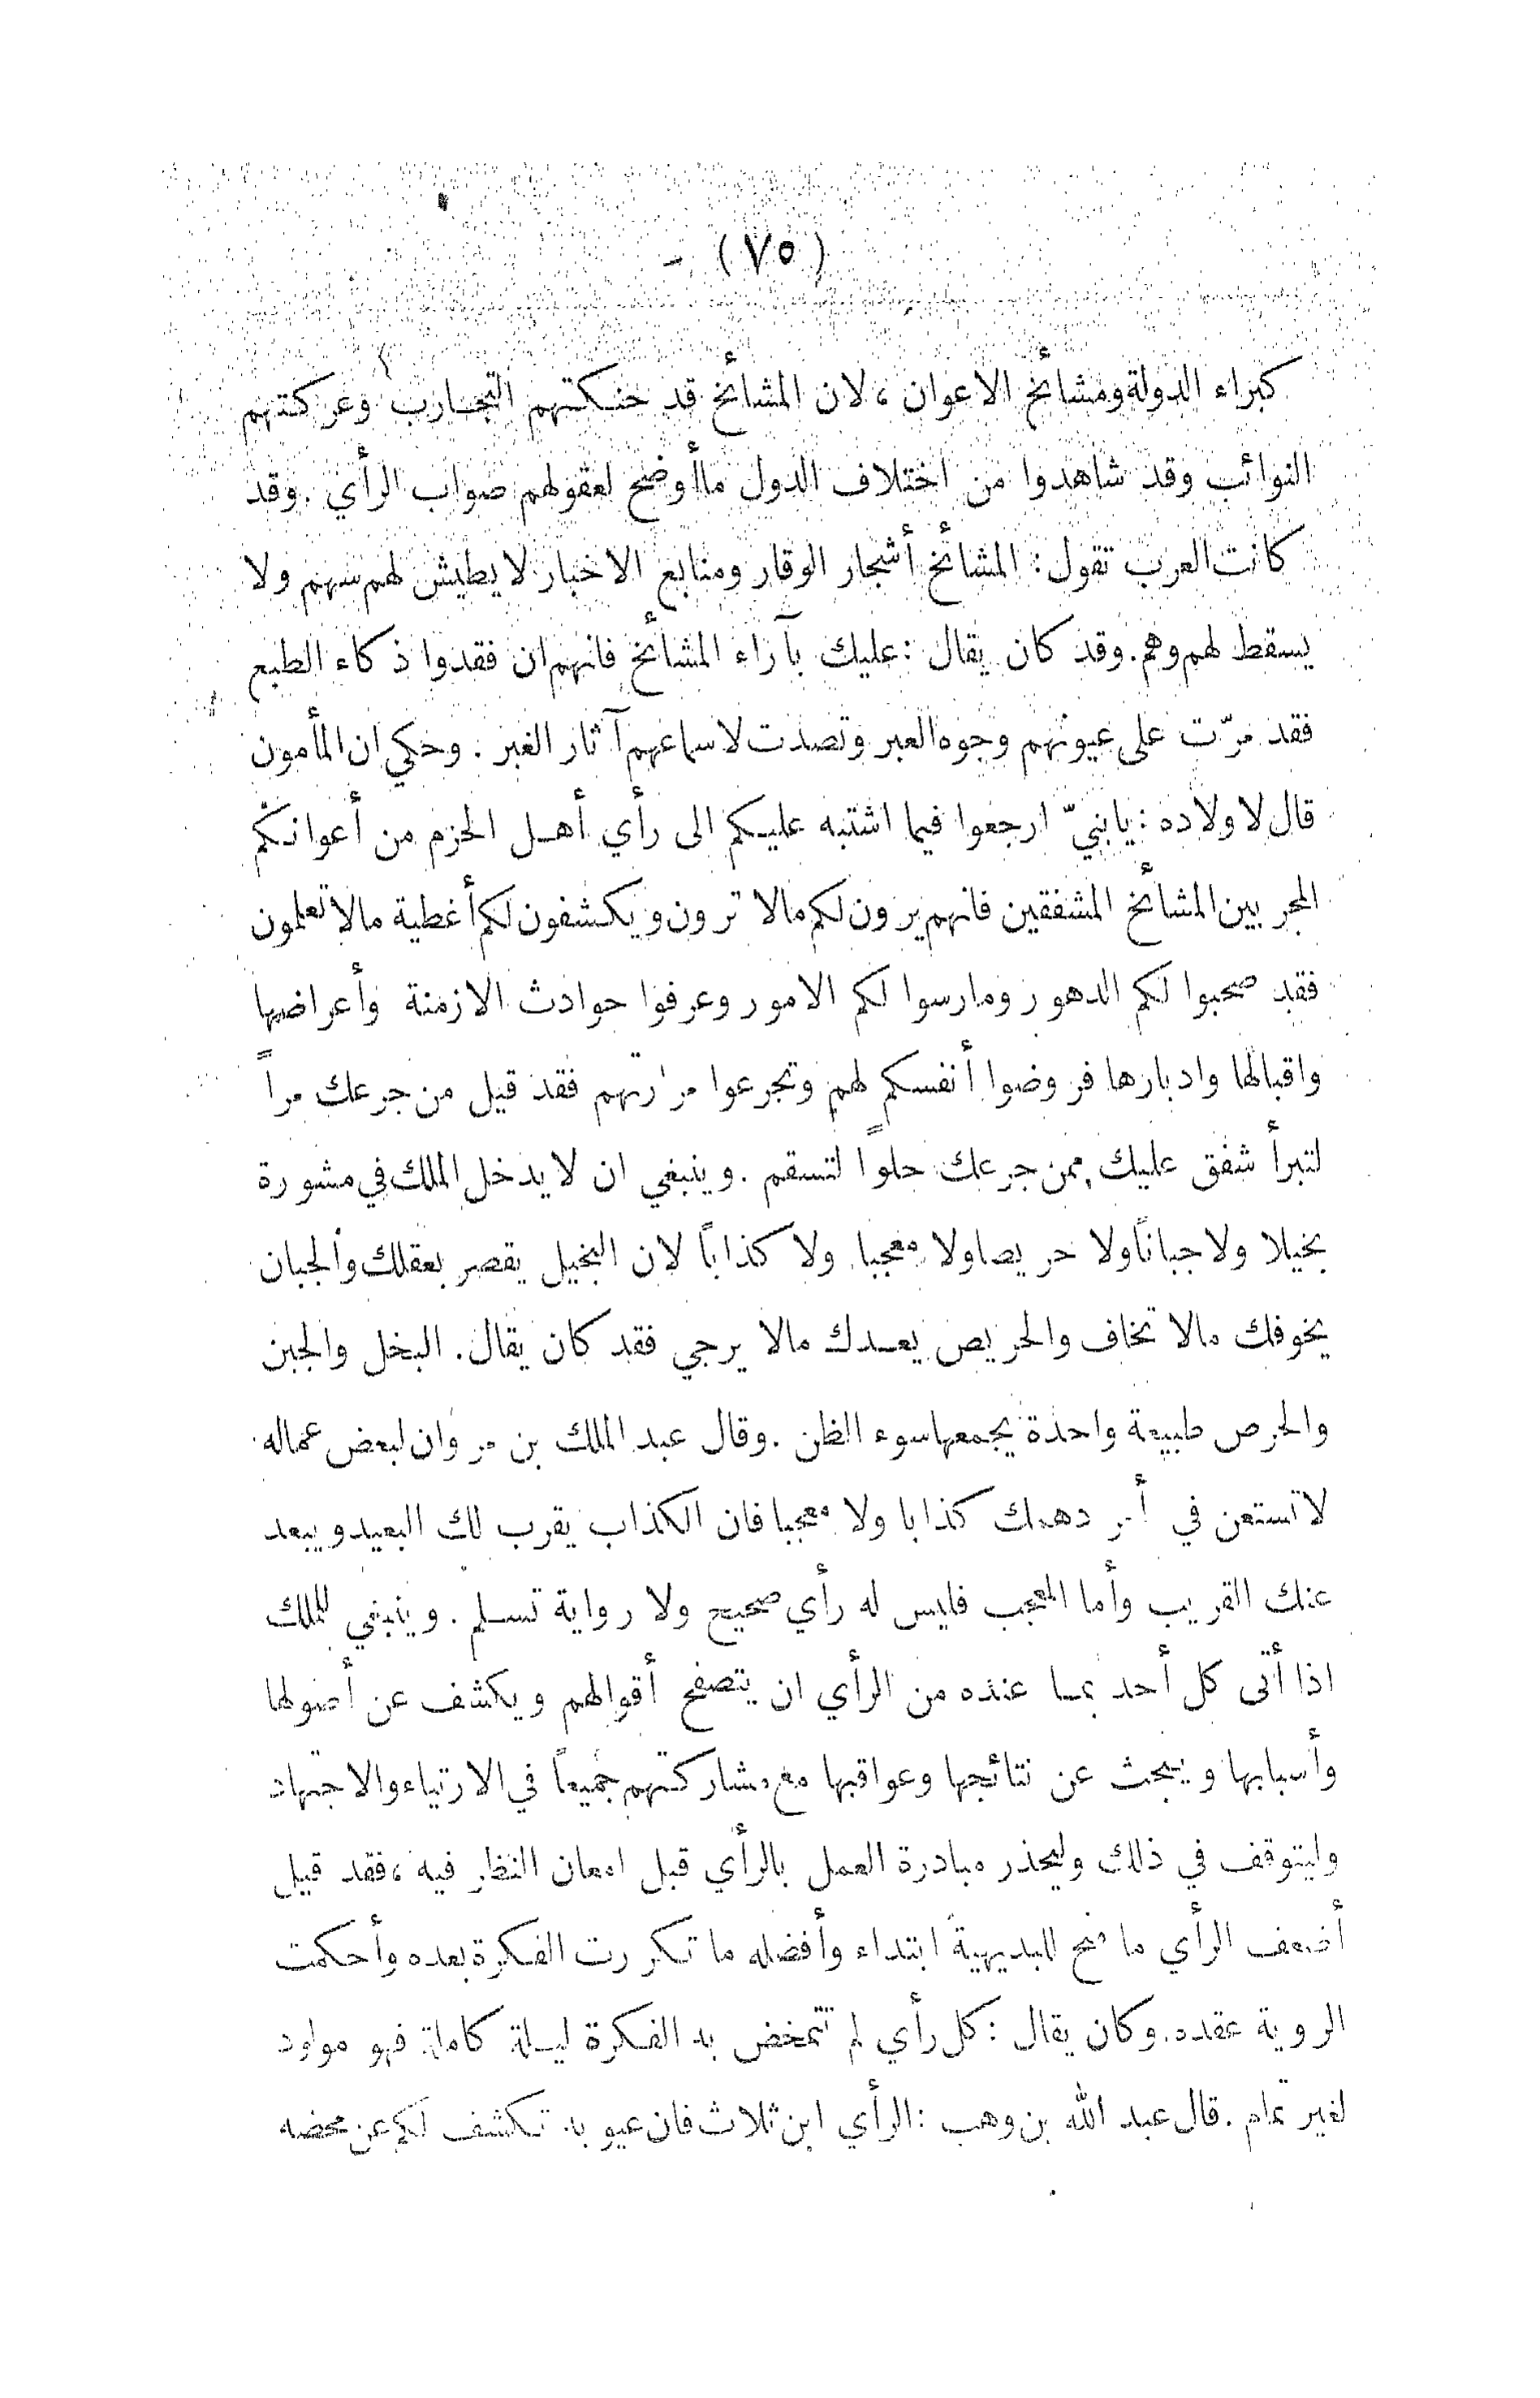 (٧٥)
كبراء الدولة ومشائخ الاعوان ، لان المشائخ قد حنكتهم التجارب وعركتهم
النوائب وقد شاهدوا من اختلاف الدول ماأوضح لعقولهم صواب الرأي . وقد
كانت العرب تقول : المشائخ أشجار الوقار ومنابع الاخبار لا يطيش لهم سهم ولا
يسقط لهم وهم . وقد كان يقال : عليك بآراء المشائخ فانهم ان فقدوا ذكاء الطبع
فقد مرّت على عيونهم وجوه العبر وتصدت لاسماعهم آثار الغبر . وحكي ان المأمون
قال لاولاده : يابنيّ ارجعوا فيما اشتبه عليكم الى رأي أهل الحزم من أعوانكم
المجربين المشائخ المشفقين فانهم يرون لكم مالا ترون ويكشفون لكم أغطية مالا تعلمون
فقد صحبوا لكم الدهور ومارسوا لكم الامور وعرفوا حوادث الازمنة وأعراضها
واقبالها وادبارها فروضوا أنفسكم لهم وتجرعوا مرارتهم فقد قيل من جرعك مراً
لتبرأ شفق عليك ممن جرعك حلواً لتسقم . وينبغي ان لا يدخل الملك في مشورة
بخيلا ولا جباناً ولا حريصا ولا معجبا ولا كذاباً لان البخيل يقصر بعقلك والجبان
يخوفك مالا تخاف والحريص يعدك مالا يرجي فقد كان يقال . البخل والجبن
والحرص طبيعة واحدة يجمعها سوء الظن . وقال عبد الملك بن مروان لبعض عماله
لا تستعن في أمر دهمك كذابا ولا معجبا فان الكذاب يقرب لك البعيد ويبعد
عنك القريب وأما المعجب فليس له رأي صحيح ولا رواية تسلم . وينبغي للملك
اذا أتى كل أحد بما عنده من الرأي ان يتصفح أقوالهم ويكشف عن أصولها
وأسبابها ويبحث عن نتائجها وعواقبها مع مشاركتهم جميعاً في الارتياء والاجتهاد
وليتوقف في ذلك وليحذر مبادرة العمل بالرأي قبل امعان النظر فيه ، فقد قيل
أضعف الرأي ما سنح للبديهية ابتداء وأفضله ما تكررت الفكرة بعده وأحكمت
الروية عقده . وكان يقال : كل رأي لم تتمخض به الفكرة ليلة كاملة فهو مولود
لغير تمام . قال عبد الله بن وهب : الرأي ابن ثلاث فان عيوبه تكشف لكم عن محضه